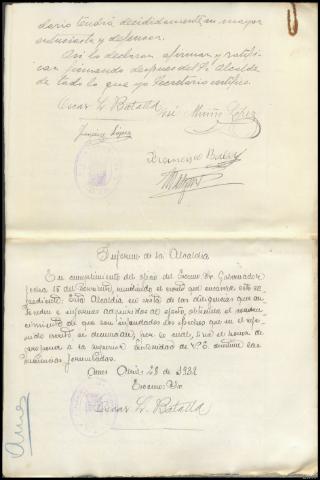 dario tendrá decididamente un mayor
entusiasta y defensor.
Así lo declaran afirman y ratifi-
can firmando despues del Sr. Alcalde
de todo lo que yo Secretario certifico.
Oscar L. Batalla José Muiño López
López
Francisco
Informe de la Alcaldia
En cumplimiento del oficio del Excmo. Sr. Gobernador
fecha 15 del corriente, remitiendo el escrito que encabeza este ex-
pediente: Esta Alcaldia en vista de las diligencias que an-
teceden e informes adquiridos al efecto, obtenido el conven-
cimiento de que son infundados los hechos que en el refe-
rido escrito se denuncian, por lo cual, tiene el honor de
proponer a la superior autoridad de V.E. desestime las
denuncias formuladas.
Ames Abril 28 de 1932
Excmo. Sr.
Oscar L. Batalla
Ames